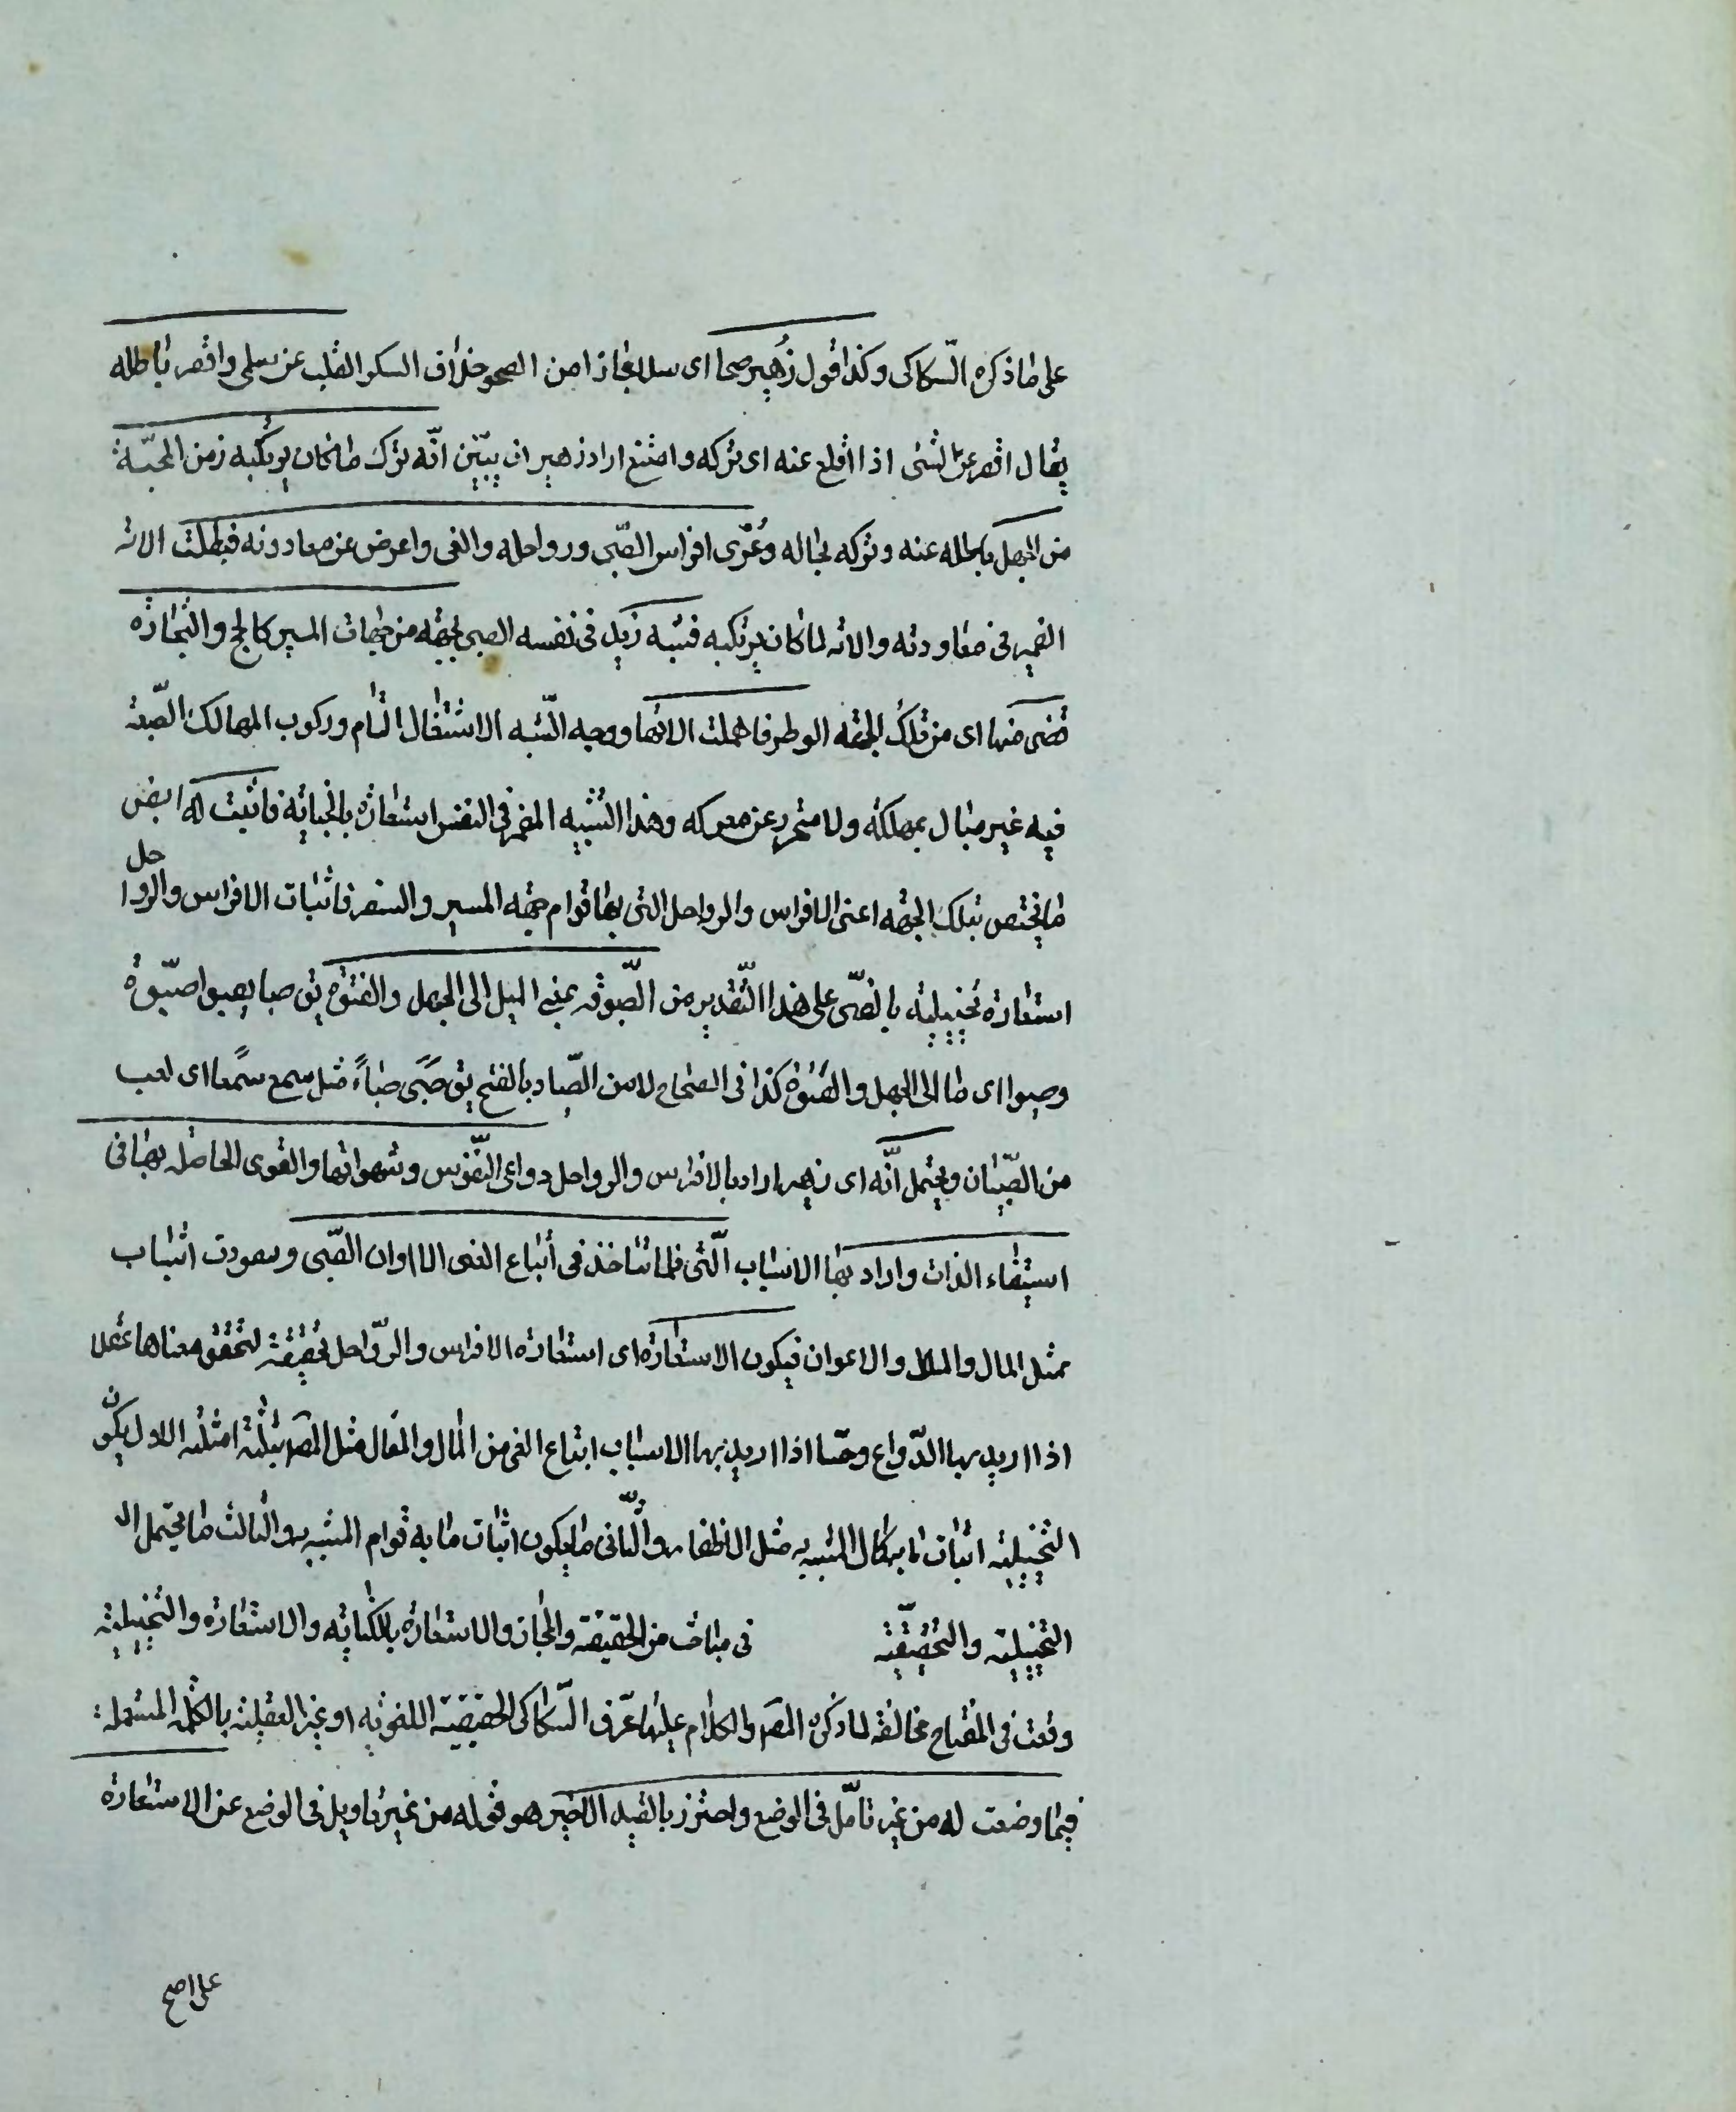 على ما ذكره السّكاكى وكذا قول زُهير صحا اى سلا مجازا من الصحو خلاف السكر القلب عن سلمى واقصر باطله
يقال اقصر عن الشئ اذا اقلع عنه اى تركه وامتنع اراد زهير ان يبيّن انّه ترك ما كان يرتكبه زمن المحبّة
من الجهل باطله عنه وتركه بحاله وعُرّى افراس الصّبى ورواحله والغى واعرض عن معاودته فبطلت الاته
الضمير فى معاودته والاته لما كان يرتكبه فشبه زيد فى نفسه الصبى بجهة من جهات المسير كالحج والتجارة
قضى منها اى من تلك الجهة الوطر فاهملت الاتها ووجه الشّبه الاشتغال التام وركوب المهالك الصّبة
فيه غير مبال بمهلكة ولا متحرز عن معركه وهذا التشبيه المضمر فى النفس استعارة بالخباية فاثبت له ايضى
ما يختص بتلك الجهة اعنى الافراس والرواحل التى بها قوام جهة المسير والسفر فاثبات الافراس والرواحل
استعارة تخييلية بالصّى على هذا التّقدير من الصّبوة بمعنى الميل الى الجهل والفتوّة يق صبا يصبوا صبّوة
وصبوا اى مال الى الجهل والفتوة كذا فى الصحاح لا من الصّباء بالفتح يق صَبَى صباءً مثل سمع سمعا اى لعب
من الصّبيان ويحتمل انّه اى زهير اراد بالافراس والرواحل دواعى النّفوس وشهواتها والقوى الحاصله بها فى
استيفاء الذات واراد بها الاسباب الّتى قلما تتاخذ فى أتباع الغى الا اوان الصّبى وسعودت اتباب
مثل المال والملا والاعوان فيكون الاستعارة اى استعارة الافراس والروّاحل تحقيقة لتحقق معناها عقلا
اذا اريد بها الدّواع وحسّا اذا اريد بها الاسباب ابتاع الغى من المال والمعال مثل المصَ بثلثة امثلة الاول يكون
التخييلية اثبات ما به كمال المشبه به مثل الاظفار والثّانى ما يكون اثبات ما به قوام المشبه به والثالث ما يحتمل ال
التخييلية والتحقيّقية فى مباحث من الحقيقة والمجاز والاستعارة بالكناية والاستعارة والتخييلية
وقعت فى المفتاح مخالفة لما ذكره المصَ والكلام عليها عرّف السّكاكى الحقيقية اللغوية اوغير العقلية بالكلمة المستعملة
فيما وضعت له من غير تامّل فى الوضع واحترز بالقيد الاخير هو قوله من غير تاويل فى الوضع عن الاستعارة
على اصح